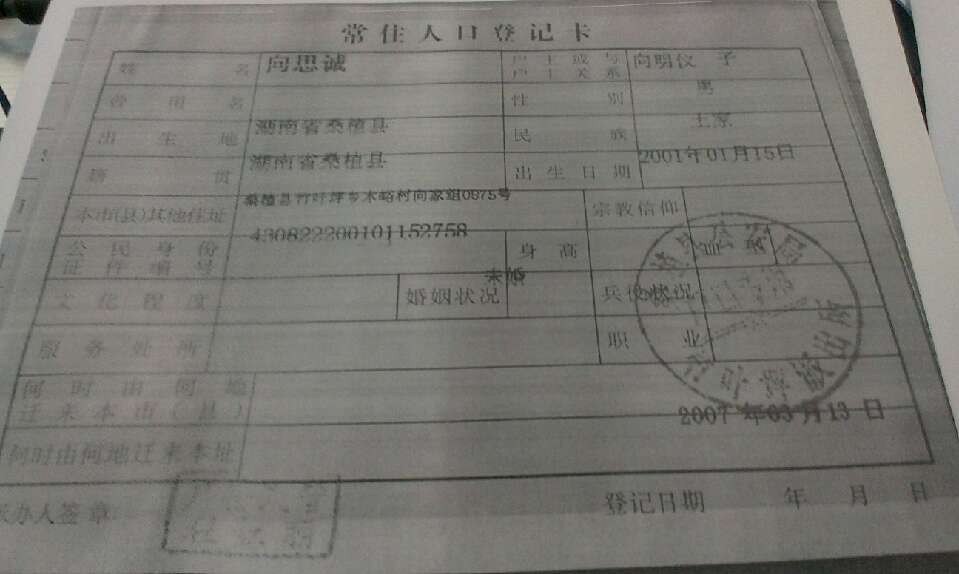 常住人口登记卡
姓名 向思诚 户主或与户主关系 向明仪 子
曾用名 性别 男
出生地 湖南省桑植县 民族 土家
籍贯 湖南省桑植县 出生日期 2001年01月15日
本市(县)其他住址 桑植县竹叶坪乡木峪村向家组0875号 宗教信仰
公民身份证件编号 430822200101152758 身高 血型
文化程度 婚姻状况 未婚 兵役状况
服务处所 职业
何时由何地迁来本市(县)
2007年03月13日
何时由何地迁来本址
承办人签章: 登记日期 年 月 日